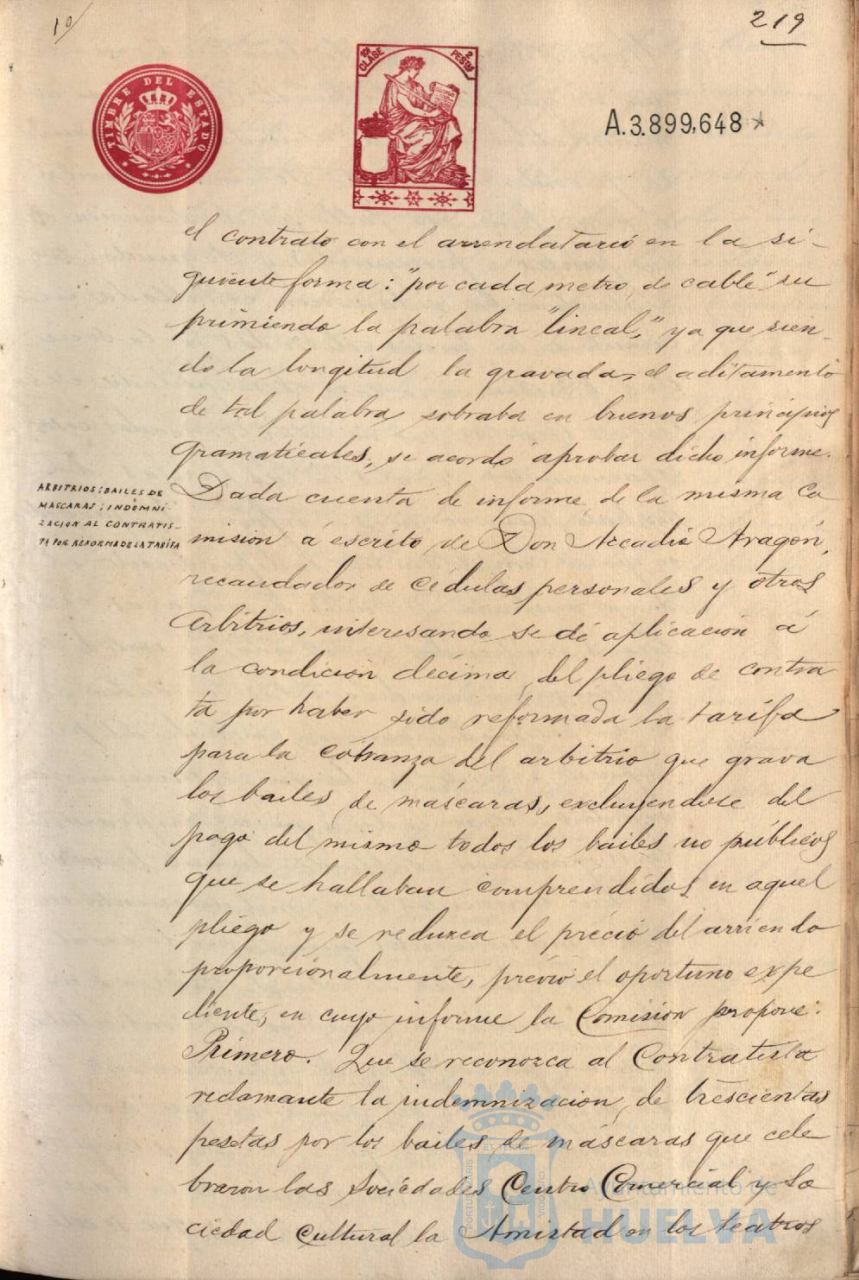 10
219
TIMBRE DEL ESTADO
10ª CLASE 2 PESTAS
A.3.899,648
el contrato con el arrendatario en la si-
guiente forma: "por cada metro, de cable" su
primiendo la palabra "lineal," ya que sien-
do la longitud la gravada, el aditamento
de tal palabra sobraba en buenos principios
gramaticales, se acordó aprobar dicho informe.
ARBITRIOS: BAILES DE
MASCARAS: INDEMNI-
ZACION AL CONTRATIS-
TA POR REFORMA DE LA TARIFA
Dada cuenta de informe de la misma Co
misión á escrito de Don Arcadio Aragón,
recaudador de cédulas personales y otros
Arbitrios, interesando se dé aplicación á
la condición décima del pliego de contra
ta por haber sido reformada la tarifa
para la cobranza del arbitrio que grava
los bailes de máscaras, excluyendose del
pago del mismo todos los bailes no públicos
que se hallaban comprendidos en aquel
pliego y se reduzca el précio del arriendo
proporcionalmente, prévio el oportuno expe
diente, en cuyo informe la Comisión propone:
Primero. Que se reconozca al Contratista
reclamante la indemnización de trescientas
pesetas por los bailes de máscaras que cele
braron las Sociedades Centro Comercial y So
ciedad Cultural la Amistad en los teatros
Ayuntamiento de
HUELVA